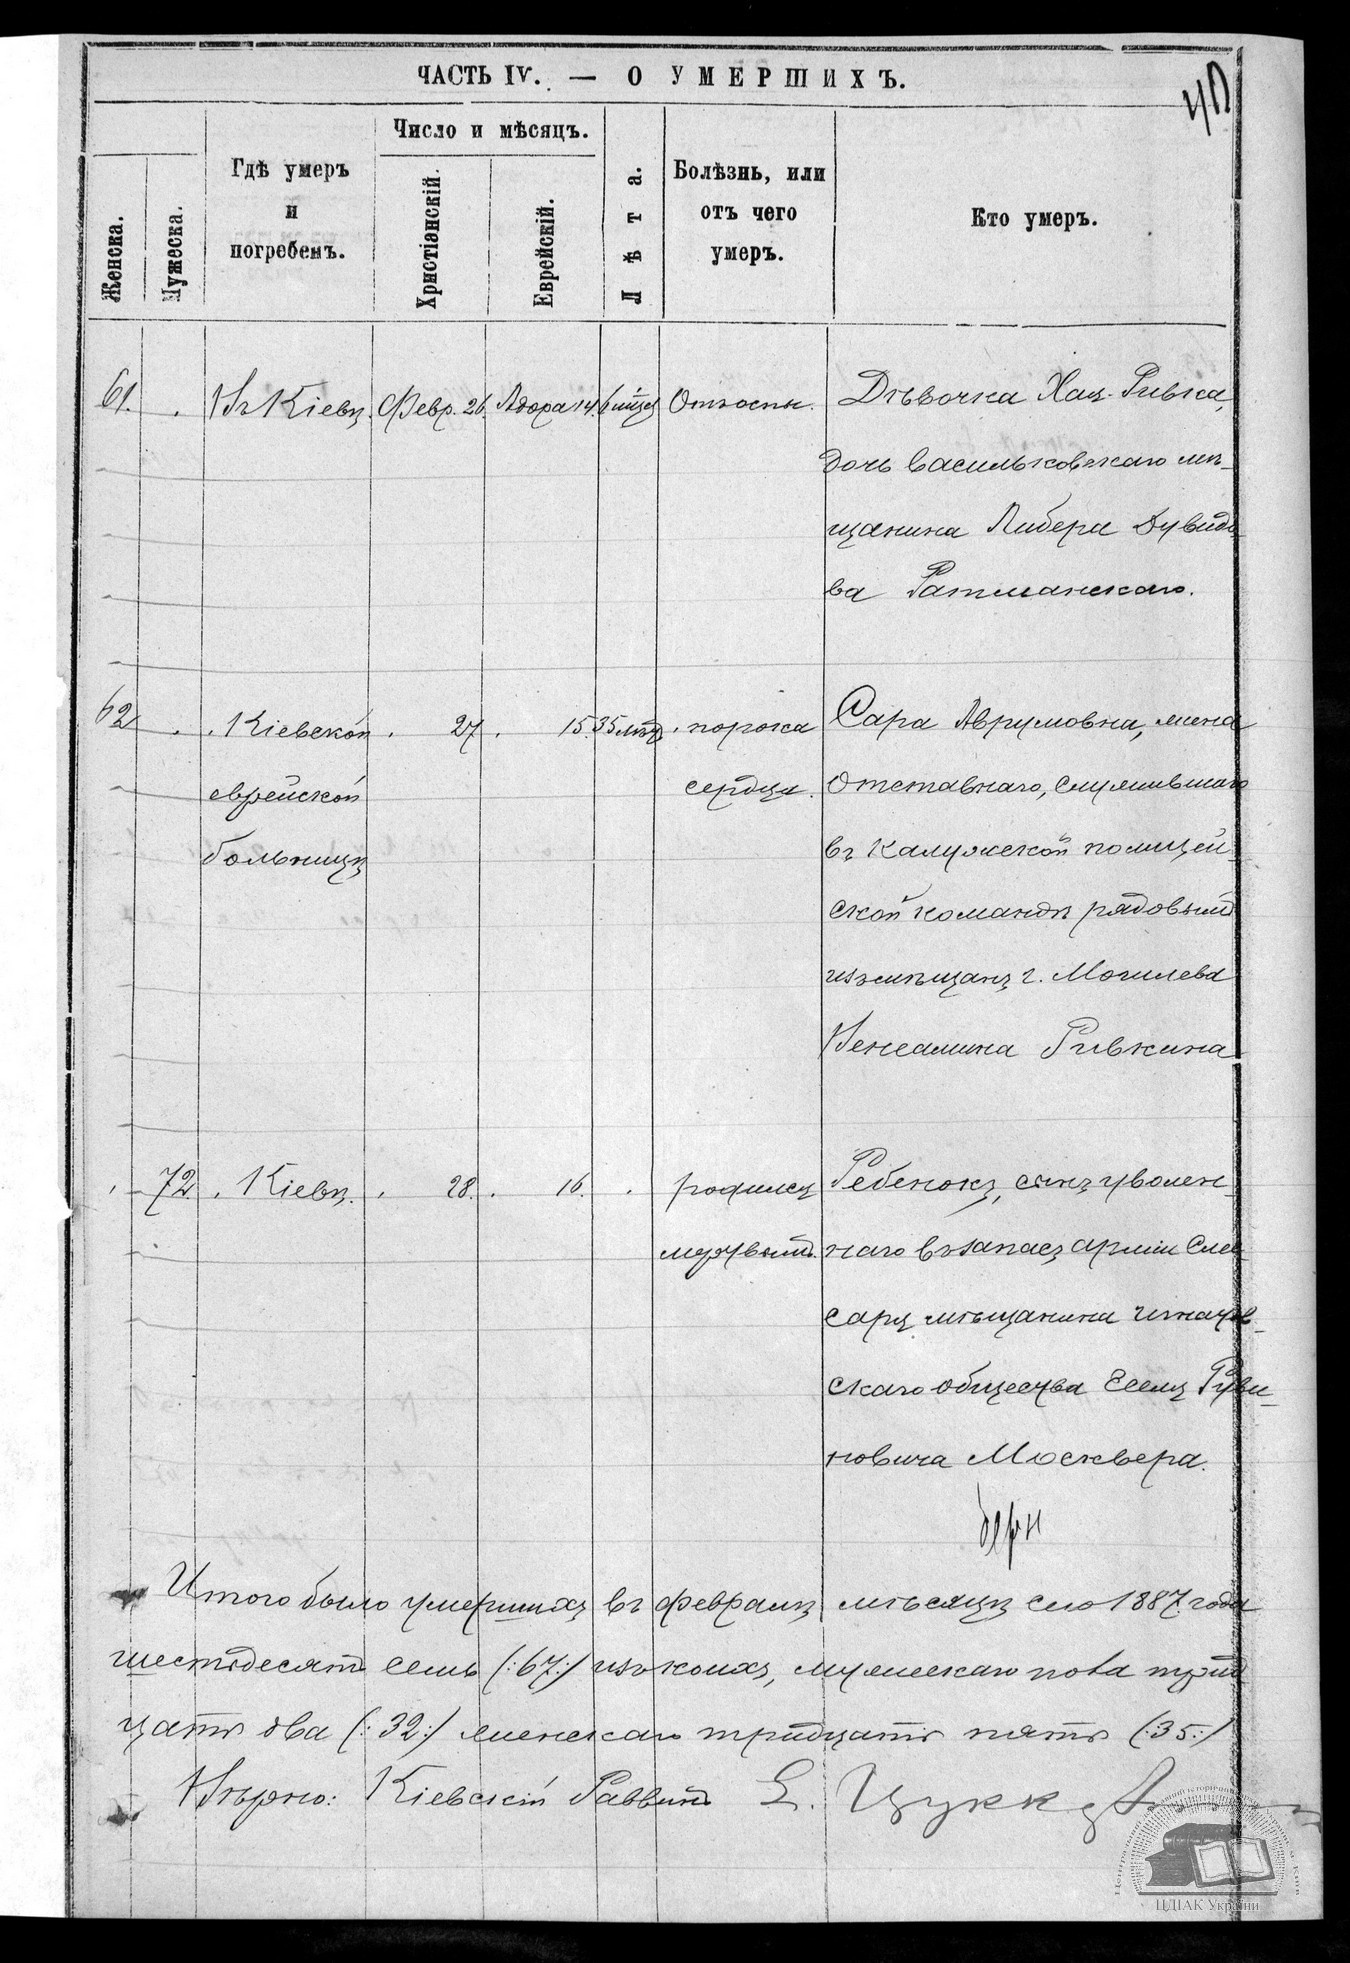 ЧАСТЬ IV. — О УМЕРШИХЪ.
Женска.
Мужеска.
Гдѣ умеръ
и
погребенъ.
Число и мѣсяцъ.
Христіанскій.
Еврейскій.
Лѣта.
Болѣзнь, или
отъ чего
умеръ.
Кто умеръ.
61. Въ Кіевѣ. Февр. 26. Адора 14. 6 мѣсц Отъ оспы. Дѣвочка Хая-Ривка,
дочь васильковскаго мѣ-
щанина Либера Дувидо-
ва Ратманскаго.
62 Кіевской 27. 15. 35 лѣтъ порока Сара Аврумовна, жена
еврейской сердца. отставнаго, служившаго
больницѣ въ Калужской полицей-
ской командѣ рядовымъ
изъ мѣщанъ г. Могилева
Веніамина Ривкина
72. Кіевѣ. 28. 16. родился Ребенокъ, сынъ уволен-
мертвымъ. наго въ запасъ арміи Слес-
саря мѣщанина
скаго общества Руви-
новича Москвера.
Итого было умершихъ въ февралѣ мѣсяцѣ сего 1887 года
шестьдесятъ семь (:67:) изъ коихъ, мужескаго пола трид
цать два (:32:) женскаго тридцать пять (:35:)
Вѣрно: Кіевскій Раввинъ Е. Цуккерман
ЦДІАК України